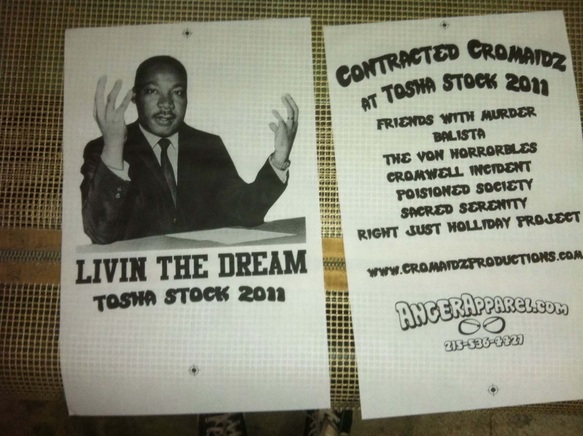 LIVIN THE DREAM
TOSHA STOCK 2011
CONTRACTED CROMAIDZ
AT TOSHA STOCK 2011
FRIENDS WITH MURDER
BALISTA
THE VON HORRORBLES
CROMWELL INCIDENT
POISIONED SOCIETY
SACRED SERENITY
RIGHT JUST HOLLIDAY PROJECT
WWW.CROMAIDZPRODUCTIONS.COM
ANGERAPPAREL.COM